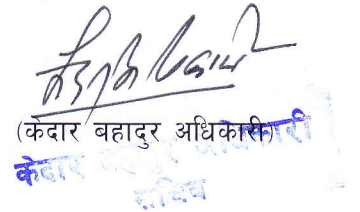 (केदार बहादुर अधिकारी)
केदार बहादुर अधिकारी
सचिव